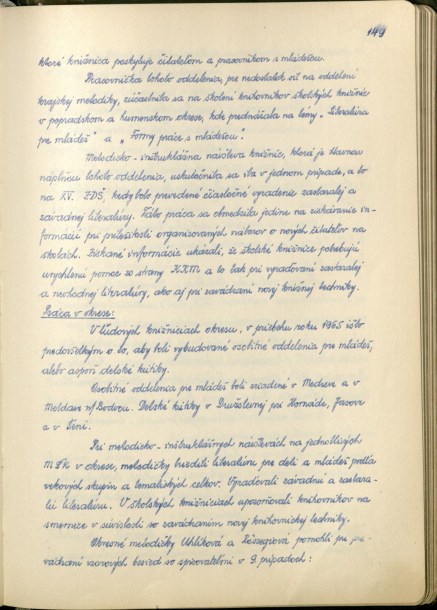 149
ktoré knižnica poskytuje čitateľom a pracovníkom s mládežou.
Pracovníčka tohoto oddelenia, pre nedostatok síl na oddelení
krajskej metodiky, zúčastnila sa na školení knihovníkov školských knižníc
v popradskom a humenskom okrese, kde prednášala na témy: "Literatúra
pre mládež" a "Formy práce s mládežou".
Metodicko-inštruktážna návšteva knižníc, ktorá je hlavnou
náplňou tohoto oddelenia, uskutočnila sa iba v jednom prípade, a to
na XV. ZDŠ, kedy bolo prevedené čiastočné vyradenie zastaralej a
závadnej literatúry. Táto práca sa obmedzila jedine na získavanie in-
formácií pri príležitosti organizovaných náborov o nových čitateľov na
školách. Získané informácie ukázali, že školské knižnice potrebujú
urýchlenú pomoc zo strany KKM a to tak pri vyraďovaní zastaralej
a nevhodnej literatúry, ako aj pri zavádzaní novej knižnej techniky.
Práca v okrese:
V ľudových knižniciach okresu, v priebehu roku 1965 išlo
predovšetkým o to, aby boli vybudované osobitné oddelenia pre mládež,
alebo aspoň detské kútiky.
Osobitné oddelenia pre mládež boli zriadené v Medzeve a v
Moldave n/Bodvou. Detské kútiky v Družstevnej pri Hornáde, Jasove
a v Seni.
Pri metodicko-inštruktážnych návštevách na jednotlivých
MĽK v okrese, metodičky triedili literatúru pre deti a mládež podľa
vekových skupín a tematických celkov. Vyraďovali závadnú a zastara-
lú literatúru. V školských knižniciach upozorňovali knihovníkov na
smernice v súvislosti so zavádzaním novej knihovníckej techniky.
Okresné metodičky Uhlíková a pomohli pri pre-
vádzaní vzorových besied so spisovateľmi v 9 prípadoch: